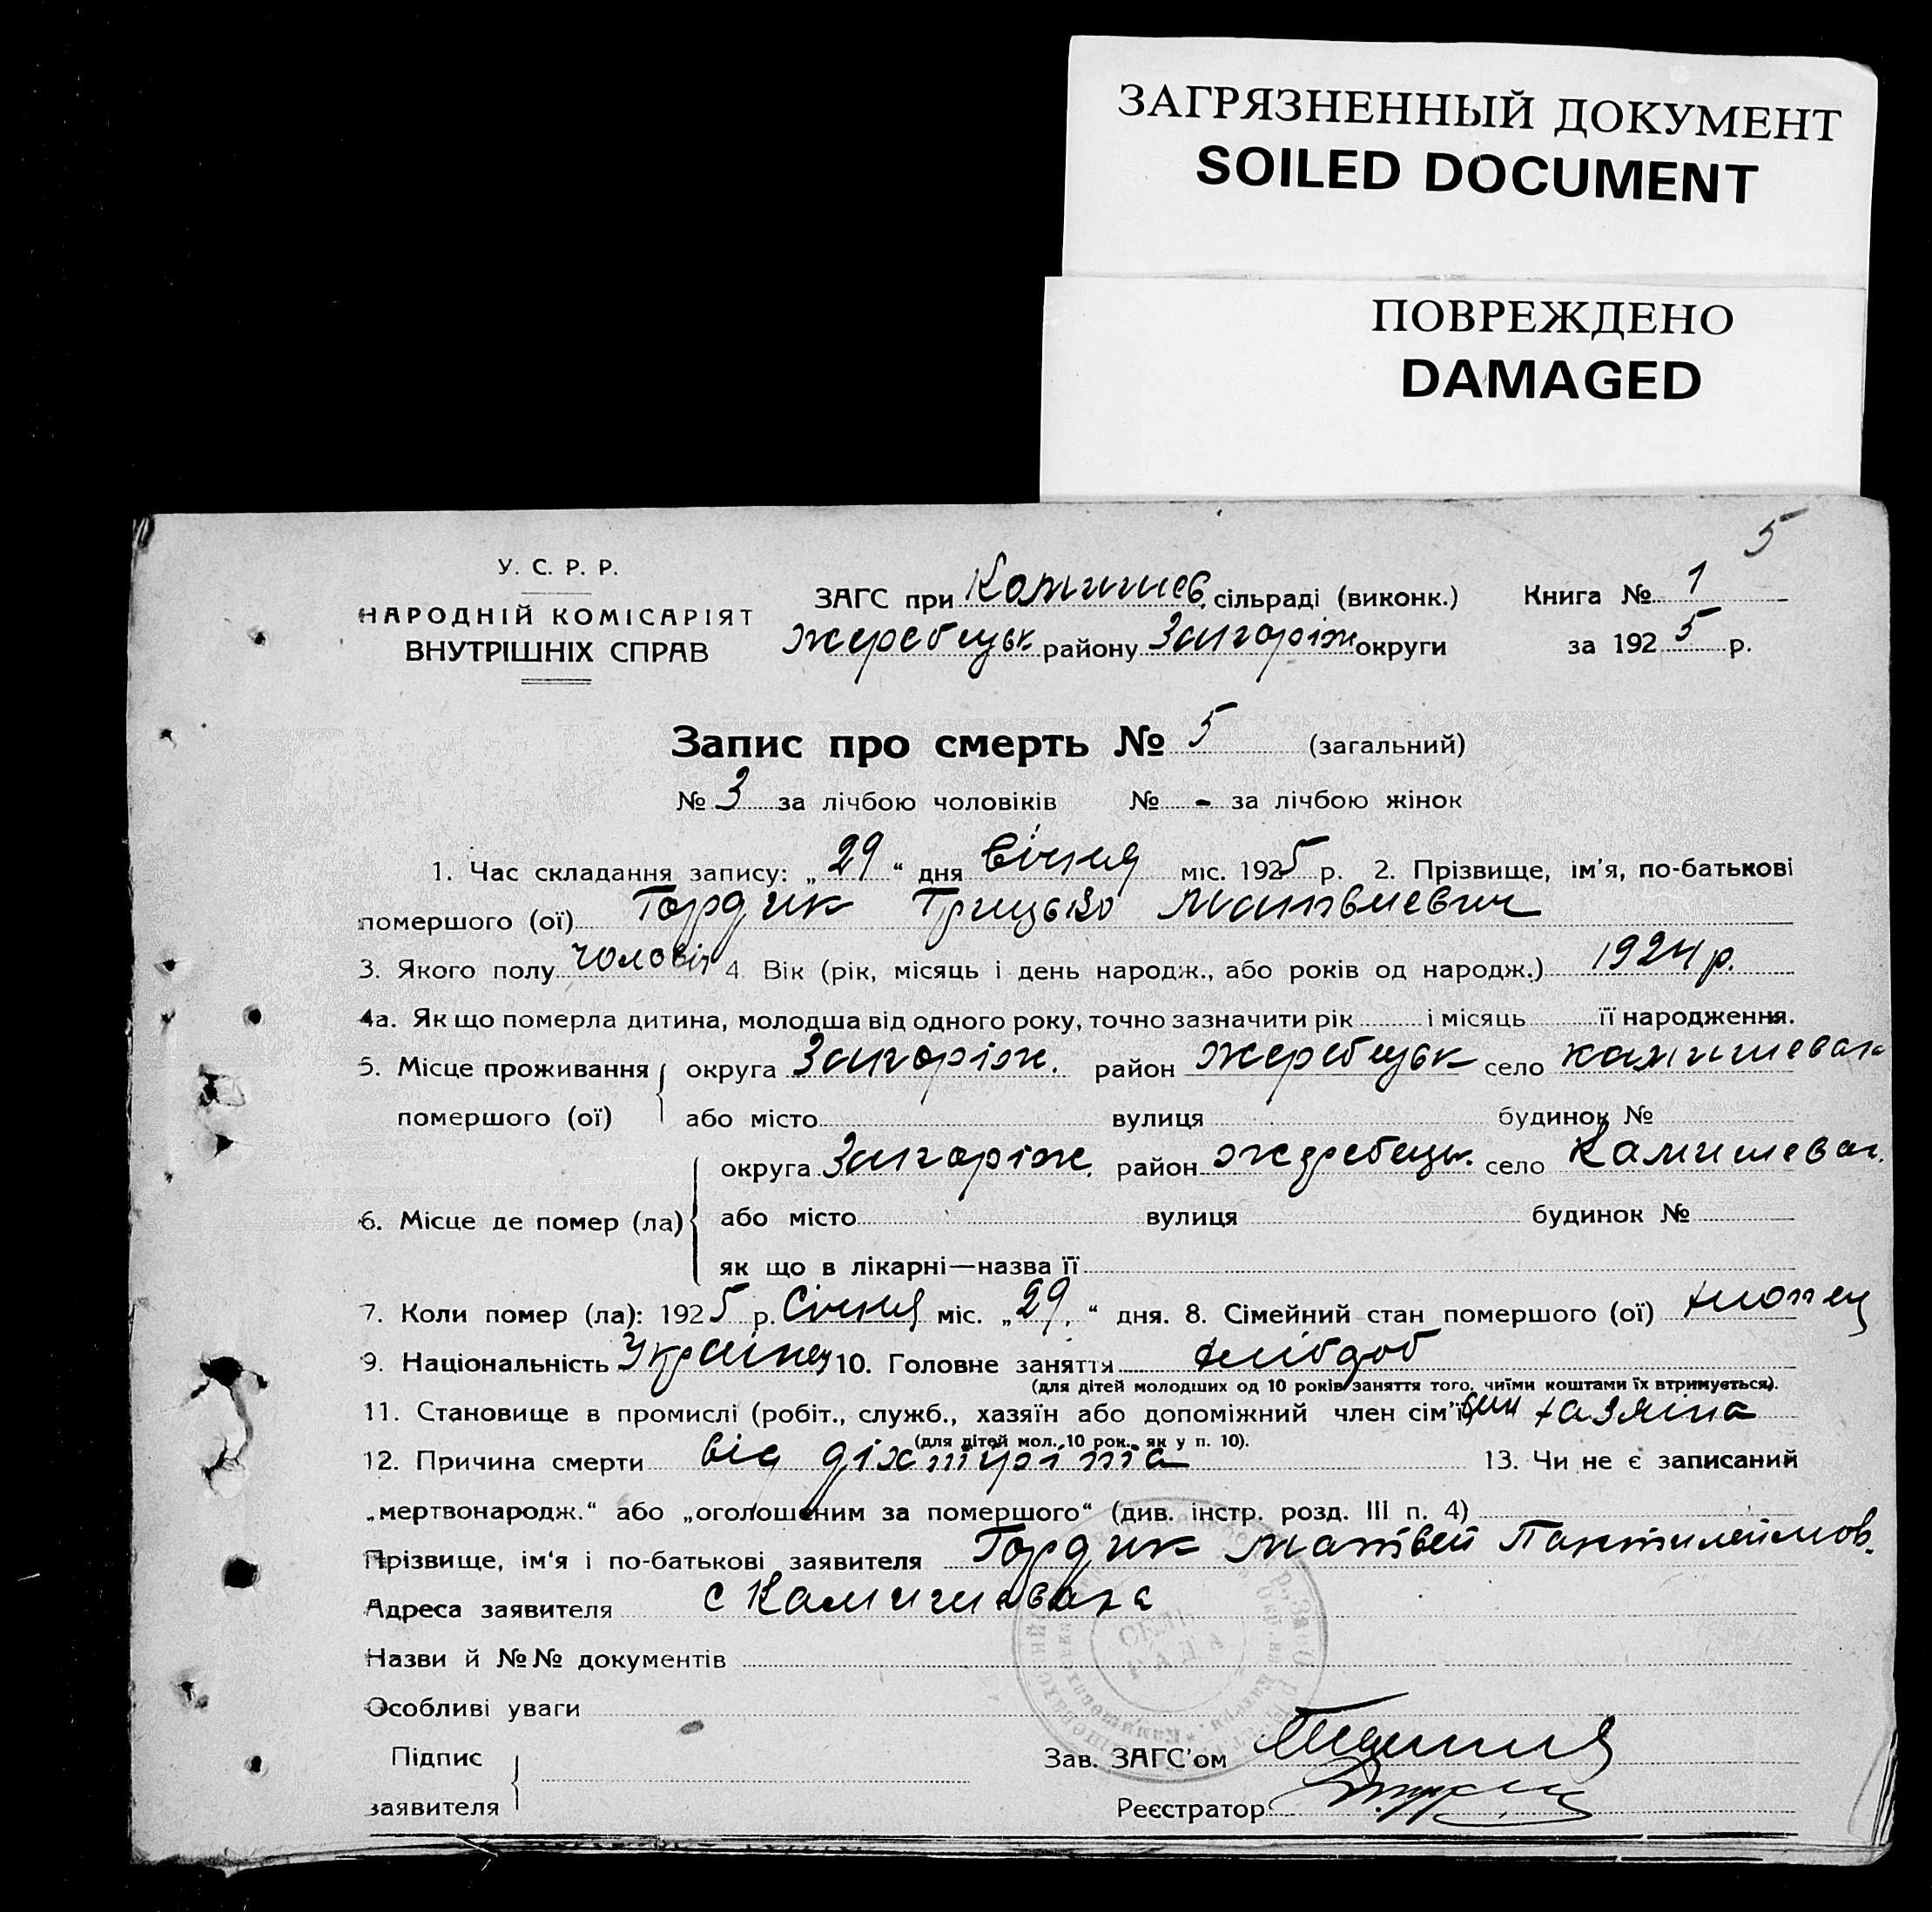 ЗАГРЯЗНЕННЫЙ ДОКУМЕНТ
SOILED DOCUMENT
ПОВРЕЖДЕНО
DAMAGED
5
У. С. Р. Р.
НАРОДНІЙ КОМІСАРІЯТ
ВНУТРІШНІХ СПРАВ
ЗАГС при Комишев. сільраді (виконк.) Книга № 1
Жеребецьк району Запоріж округи за 1925 р.
Запис про смерть № 5 (загальний)
№ 3 за лічбою чоловіків № - за лічбою жінок
1. Час складання запису: „29“ дня Січня міс. 1925 р. 2. Прізвище, ім'я, по-батькові
помершого (ої) Гордик Грицько Матвиевич
3. Якого полу чоловіч 4. Вік (рік, місяць і день народж., або років од народж.) 1924 р.
4а. Як що померла дитина, молодша від одного року, точно зазначити рік і місяць її народження.
5. Місце проживання округа Запоріж. район Жеребецьк село Камишевах
помершого (ої) або місто вулиця будинок №
округа Запоріж. район Жеребецьк. село Камишевах.
6. Місце де помер (ла) або місто вулиця будинок №
як що в лікарні—назва її
7. Коли помер (ла): 1925 р. Січня міс. „29.“ дня. 8. Сімейний стан помершого (ої) хлопець
9. Національність Українец 10. Головне заняття хлібороб
(для дітей молодших од 10 років заняття того, чиїми коштами їх втримується).
11. Становище в промислі (робіт., служб., хазяїн або допоміжний член сім'ї) син хазяїна
(для дітей мол. 10 рок. як у п. 10).
12. Причина смерти від діхтиріта 13. Чи не є записаний
„мертвонародж.“ або „оголошеним за помершого“ (див. інстр. розд. III п. 4)
Прізвище, ім'я і по-батькові заявителя Гордик Матвей Пантилеймов.
Адреса заявителя с Камишеваха
СЕЛЬ
РАДА
Назви й №№ документів
Особливі уваги
Підпис
заявителя
Зав. ЗАГС'ом
Реєстратор